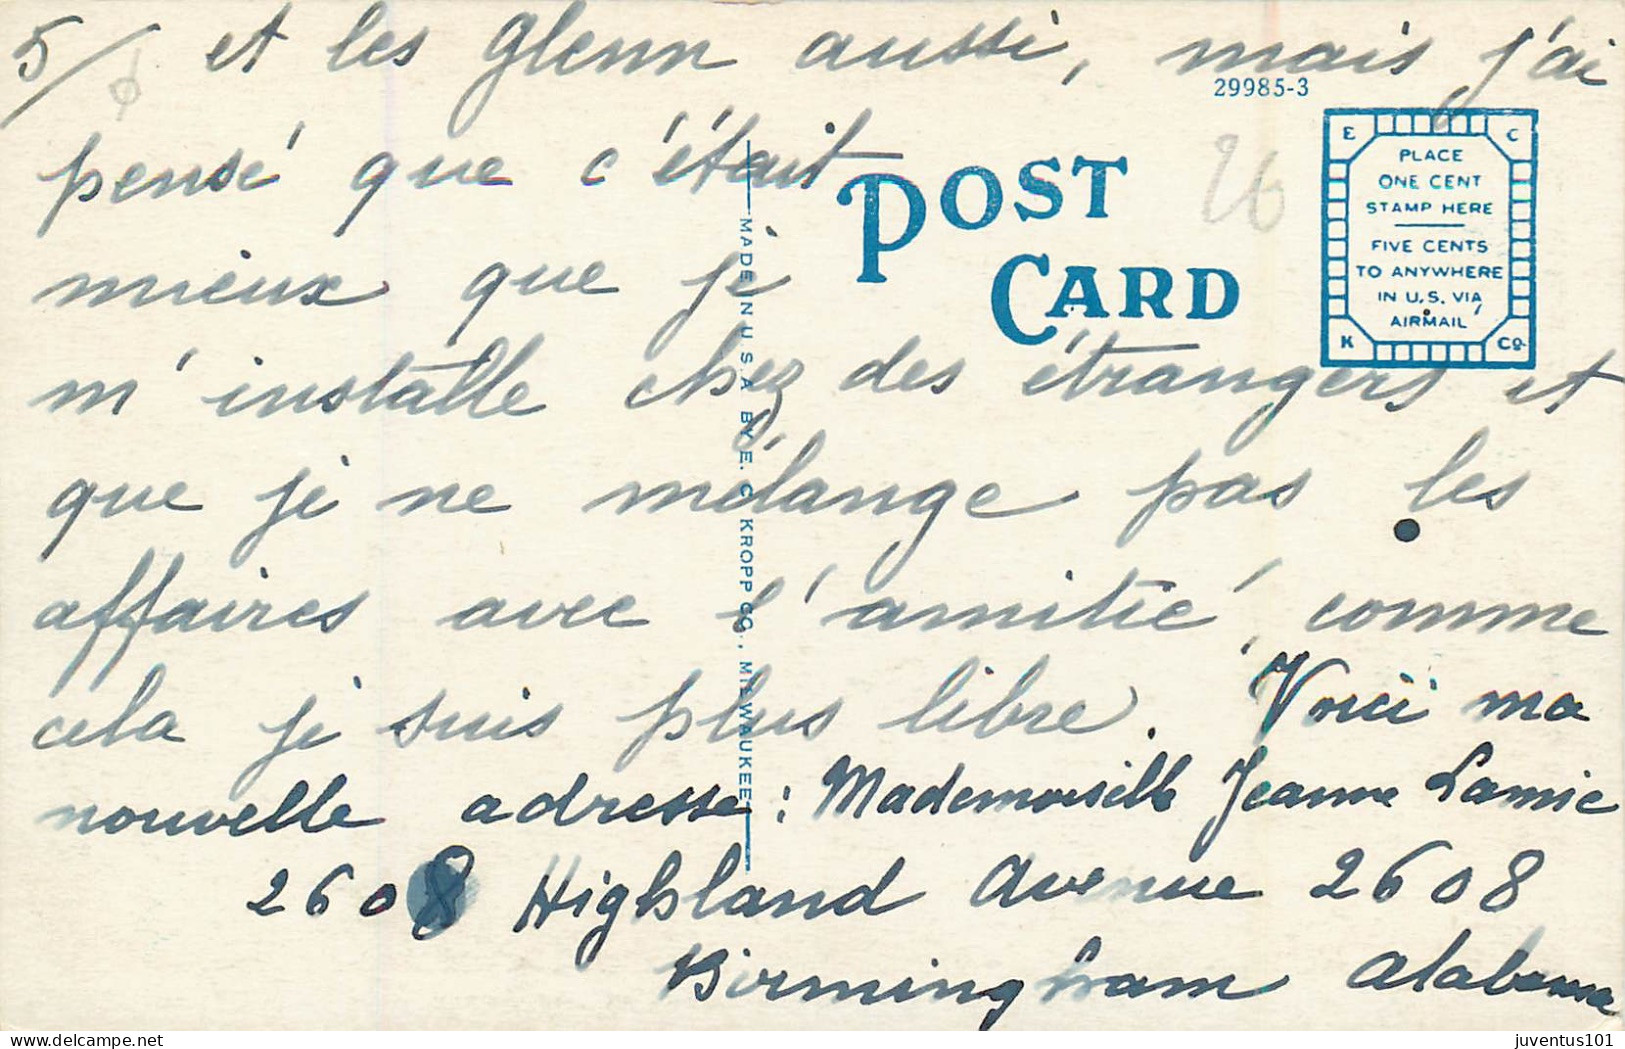 5/ et les Glenn aussi, mais j'ai
29985-3
pensé que c'était
26
POST
CARD
E C
PLACE
ONE CENT
STAMP HERE
FIVE CENTS
TO ANYWHERE
IN U.S. VIA
AIRMAIL
K Co.
mieux que je
m'installe chez des étrangers et
que je ne mélange pas les
affaires avec l'amitié, comme
cela je suis plus libre. Voici ma
nouvelle adresse : Mademoiselle Jeanne Lamie
2608 Highland Avenue 2608
Birmingham Alabama
MADE IN U.S.A. BY E. C. KROPP CO., MILWAUKEE
delcampe.net
juventus101